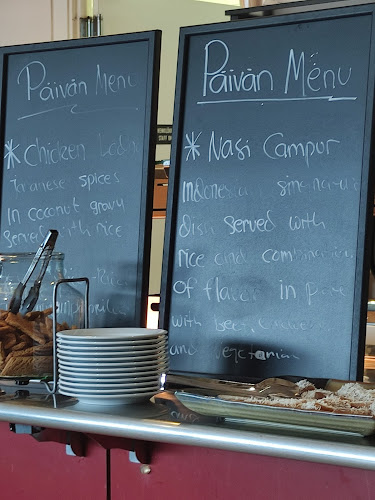 Päivän Menu
* Chicken
Javanese spices
In coconut gravy
Served with rice
and
Päivän Menu
* Nasi Campur
Indonesian signature
dish served with
rice and combination
of flavor in
with beef,
and vegetarian